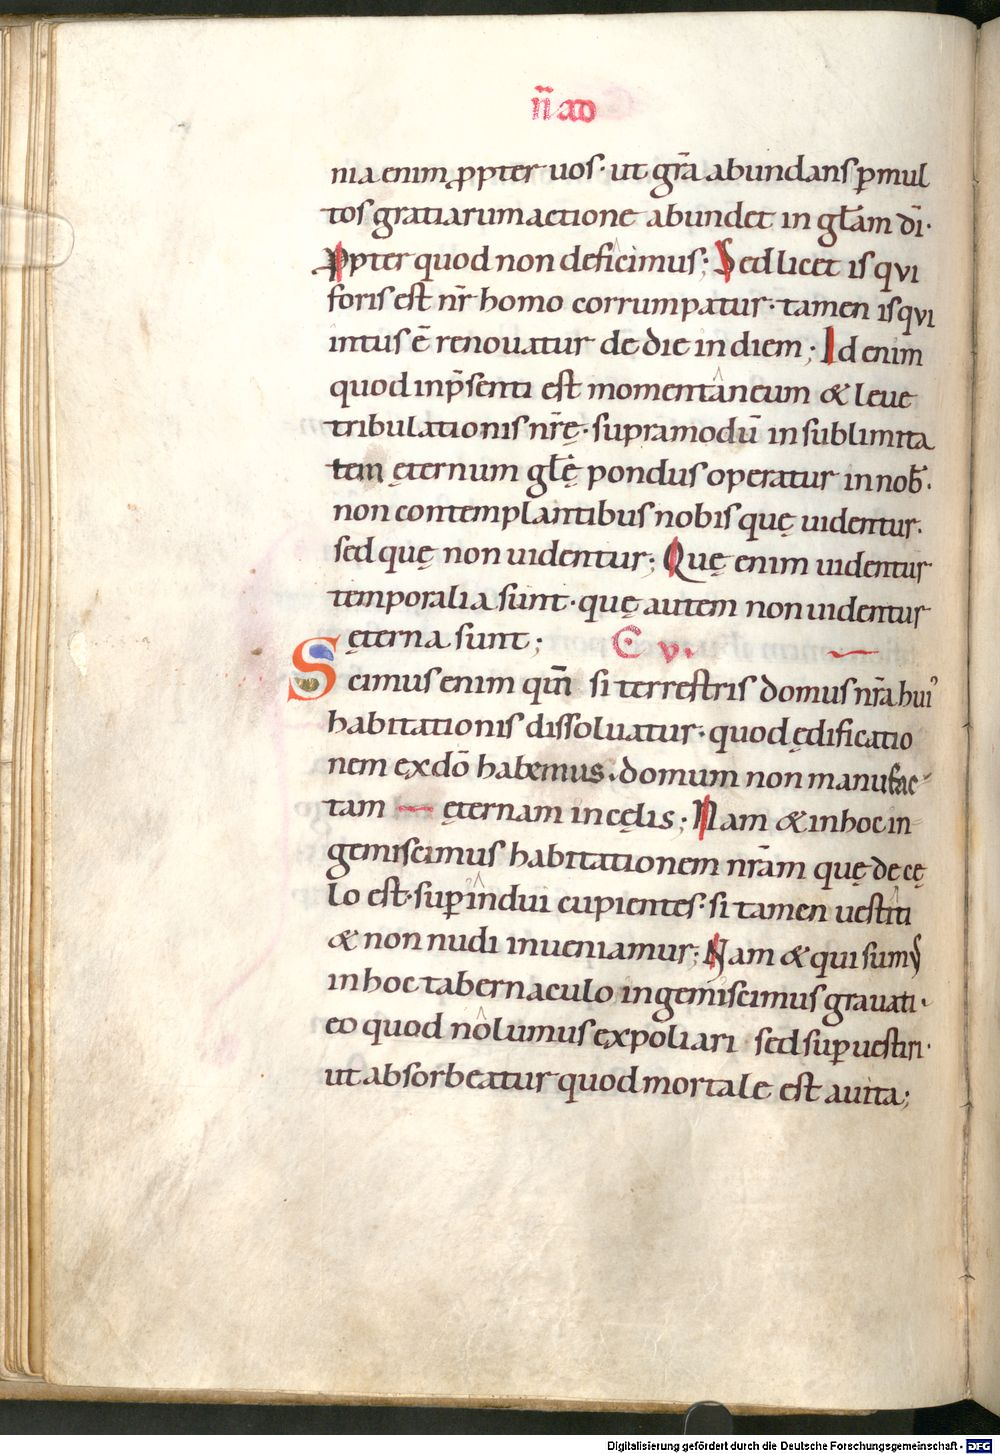 ii ad
nia enim ꝓpter uos· ut gr̃a abundans ꝑ mul
tos gratiarum actione abundet in gl̃am dī·
Ꝓpter quod non deficimus; Sed licet is qui
foris est nr̃ homo corrumpatur· tamen is qui
intus ē renouatur de die in diem; Id enim
quod in p̃senti est momentaneum & leue
tribulationis nr̃ę· supra modū in sublimita
tem ęternum gl̃ę pondus operatur in nob̃·
non contemplantibus nobis quę uidentur·
sed quę non uidentur; Quę enim uidentur
temporalia sunt· quę autem non uidentur
ęterna sunt; C v·
Scimus enim qm̄ si terrestris domus nr̃a huiꝰ
habitationis dissoluatur· quod ędificatio
nem ex dō habemus· domum non manufac-
tam ęternam in cęlis; Nam & in hoc in
gemiscimus habitationem nr̃am quę de cę
lo est· suꝑindui cupientes· si tamen uestiti
& non nudi inueniamur; Nam & qui sumꝰ
in hoc tabernaculo ingemiscimus grauati·
eo quod nolumus expoliari sed suꝑuestiri·
ut absorbeatur quod mortale est a uita;
Digitalisierung gefördert durch die Deutsche Forschungsgemeinschaft - DFG